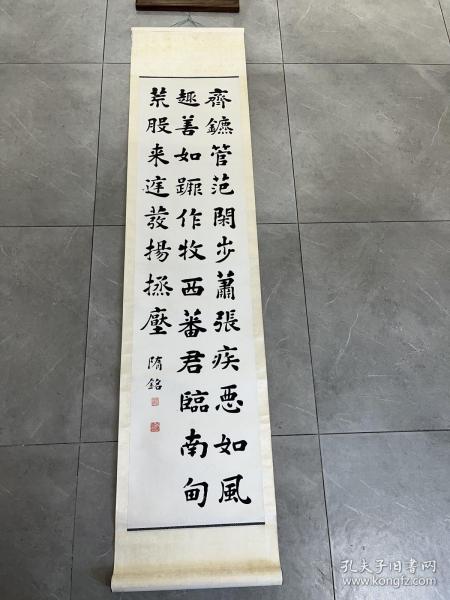 齊鑣管范閑步蕭張疾惡如風
趣善如蹤作牧西蕃君臨南甸
荒服来遅蕟揚拯壓
隋銘
孔夫子旧书网
www.kongfz.com